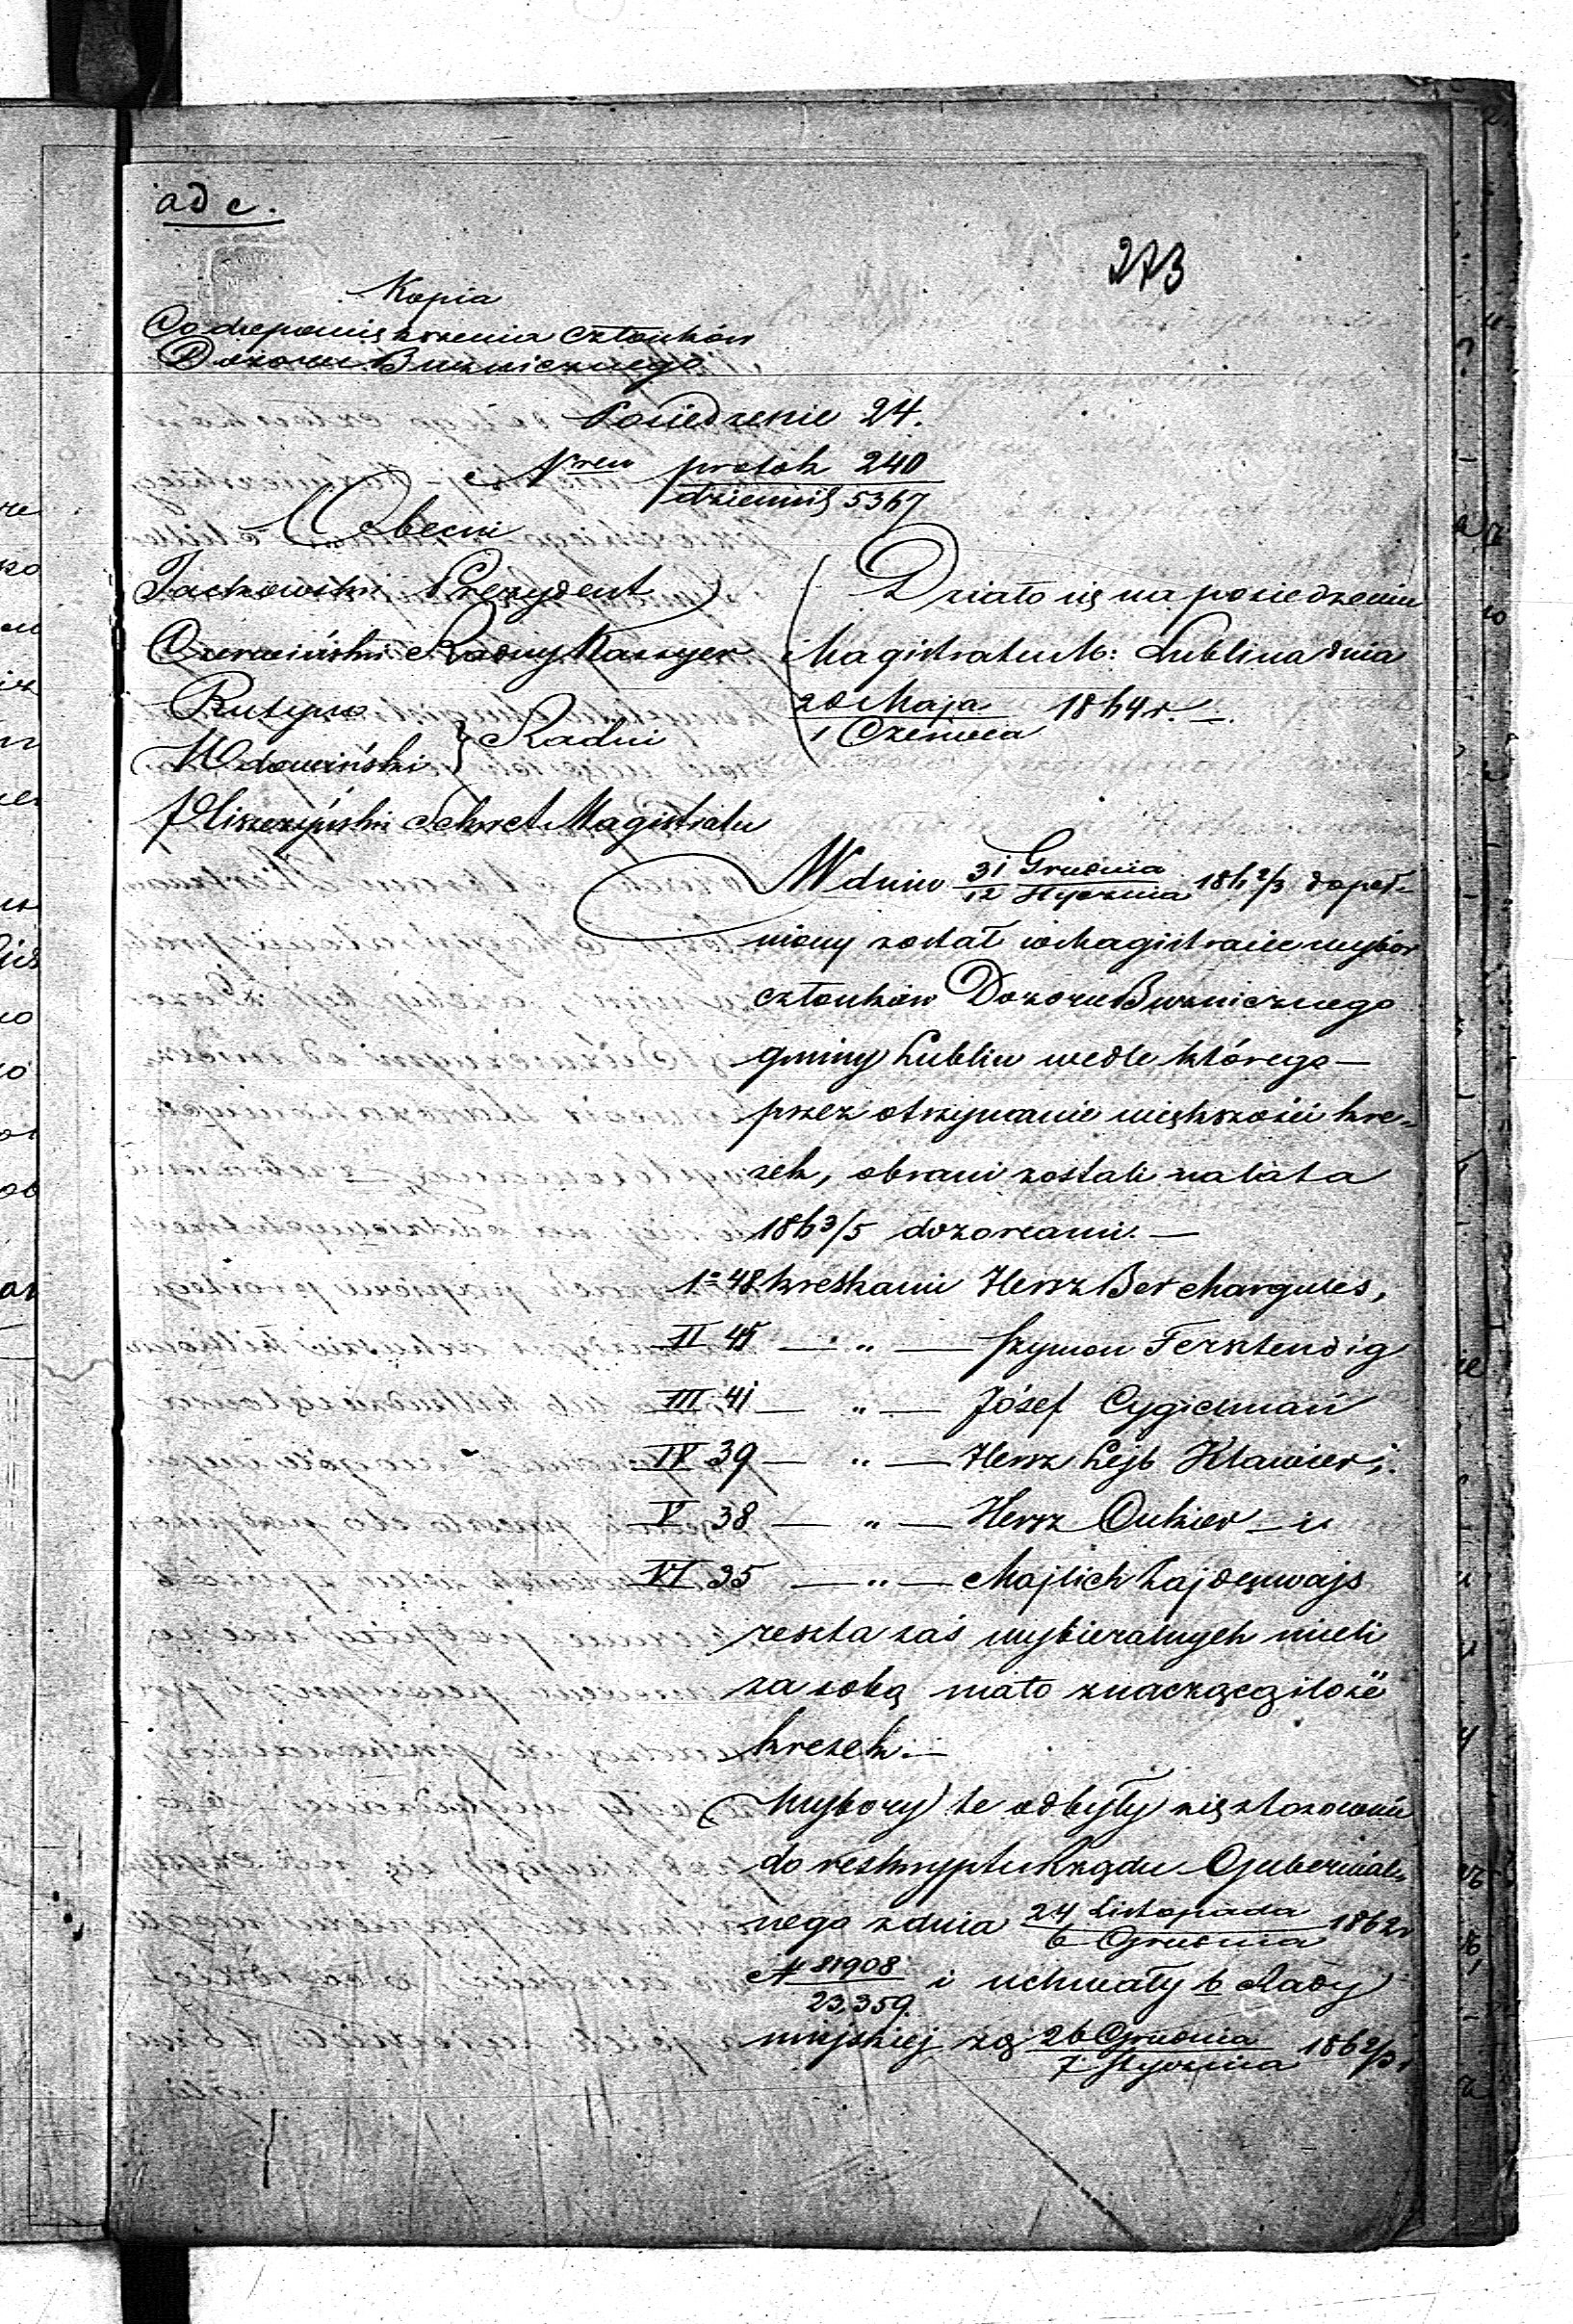 ad c.
273
Kopia
Co do powiększenia członków
Dozoru Bużniczego
Posiedzenie 24.
Nrem protok 240
dziennik 5367
Obecni
Jachowski Prezydent
Czerwiński Radny Kassyer
Rutyno
Wdowiński } Radni
Sekret. Magistratu
Działo się na posiedzeniu
Magistratu M: Lublina dnia
20 Maja
1 Czerwca 1864 r.—
W dniu 31 Grudnia
12 Stycznia 1862/3 dopeł-
niony został w Magistracie wybór
członków Dozoru Bużniczego
gminy Lublin wedle którego—
przez otrzymanie większości kre-
sek, obrani zostali na lata
1863/5 dozorcami.—
1o 48 kreskami Hersz Ber Margules,
II 45 — „ — Szymon Fersztendig
III 41 — „ — Józef Cygielman
IV 39 — „ — Hersz Lejb Klawier;
V 38 — „ — Hersz Cukier — i
VI 35 — „ — Majlich Zajdenwajs
reszta zaś wybieralnych mieli
za sobą mało znaczącą ilość
kresek.—
Wybory te odbyły się stosownie
do reskryptu Rządu Gubernial-
nego z dnia 24 Listopada
6 Grudnia 1862 r
N 81908
23,359 i uchwały b. Rady
miejskiej z d 26 Grudnia
7 Stycznia 1862/3 r